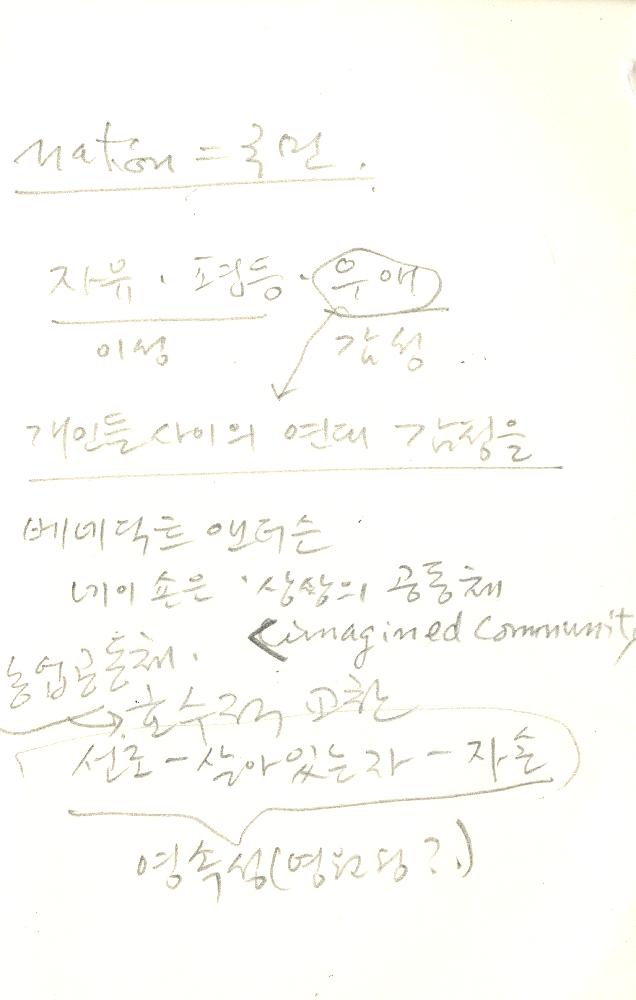 nation = 국민.
자유 · 평등 · 우애
이성 감성
개인들사이의 연대 감정을
베네딕트 앤더슨
네이숀은 '상상의 공동체
<imagined Community
농업공동체.
호수적 교환
선조 - 살아있는자 - 자손
영속성(영원성?.)